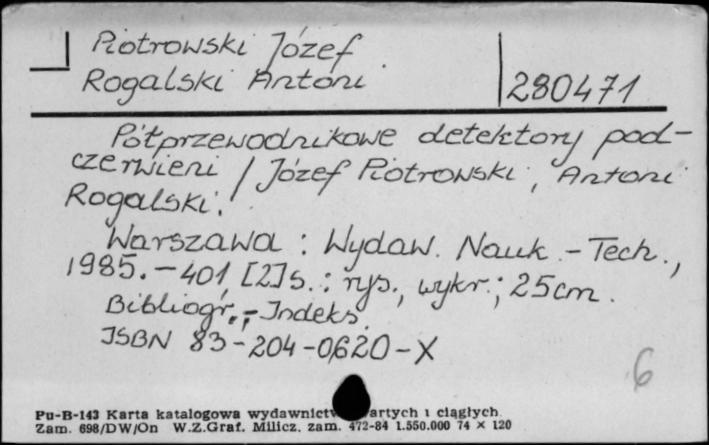 Piotrowski Józef
Rogalski Antoni
280471
Półprzewodnikowe detektory pod-
czerwieni / Józef Piotrowski, Antoni
Rogalski.
Warszawa : Wydaw. Nauk.-Tech.,
1985. - 401, [2] s. : rys., wykr.; 25cm.
Bibliogr., - Indeks.
ISBN 83-204-0620-X
6
Pu-B-143 Karta katalogowa wydawnictw artych i ciągłych
Zam. 698/DW/On W.Z.Graf. Milicz, zam. 472-84 1.550.000 74 × 120